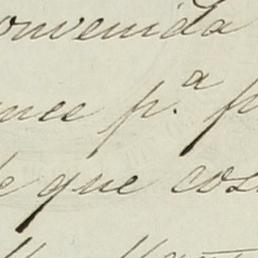 onvenida
nce p.ª p
e que cos